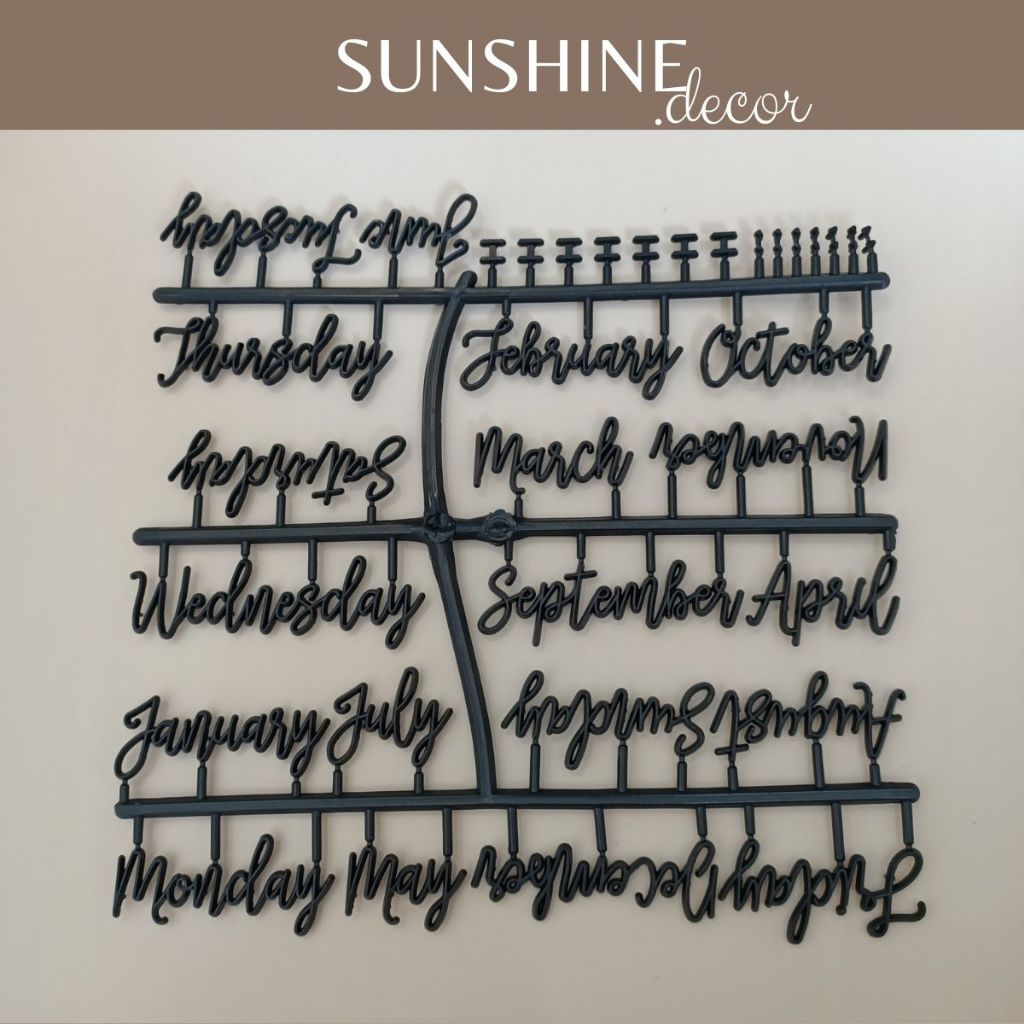 SUNSHINE
.decor
Tuesday June
Thursday February October
Saturday March November
Wednesday September April
January July Sunday August
Monday May December Friday